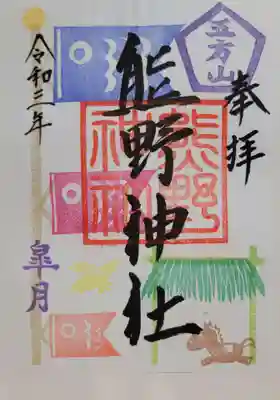 奉拝
五方山
熊野神社
熊野神社
令和二年
皐月